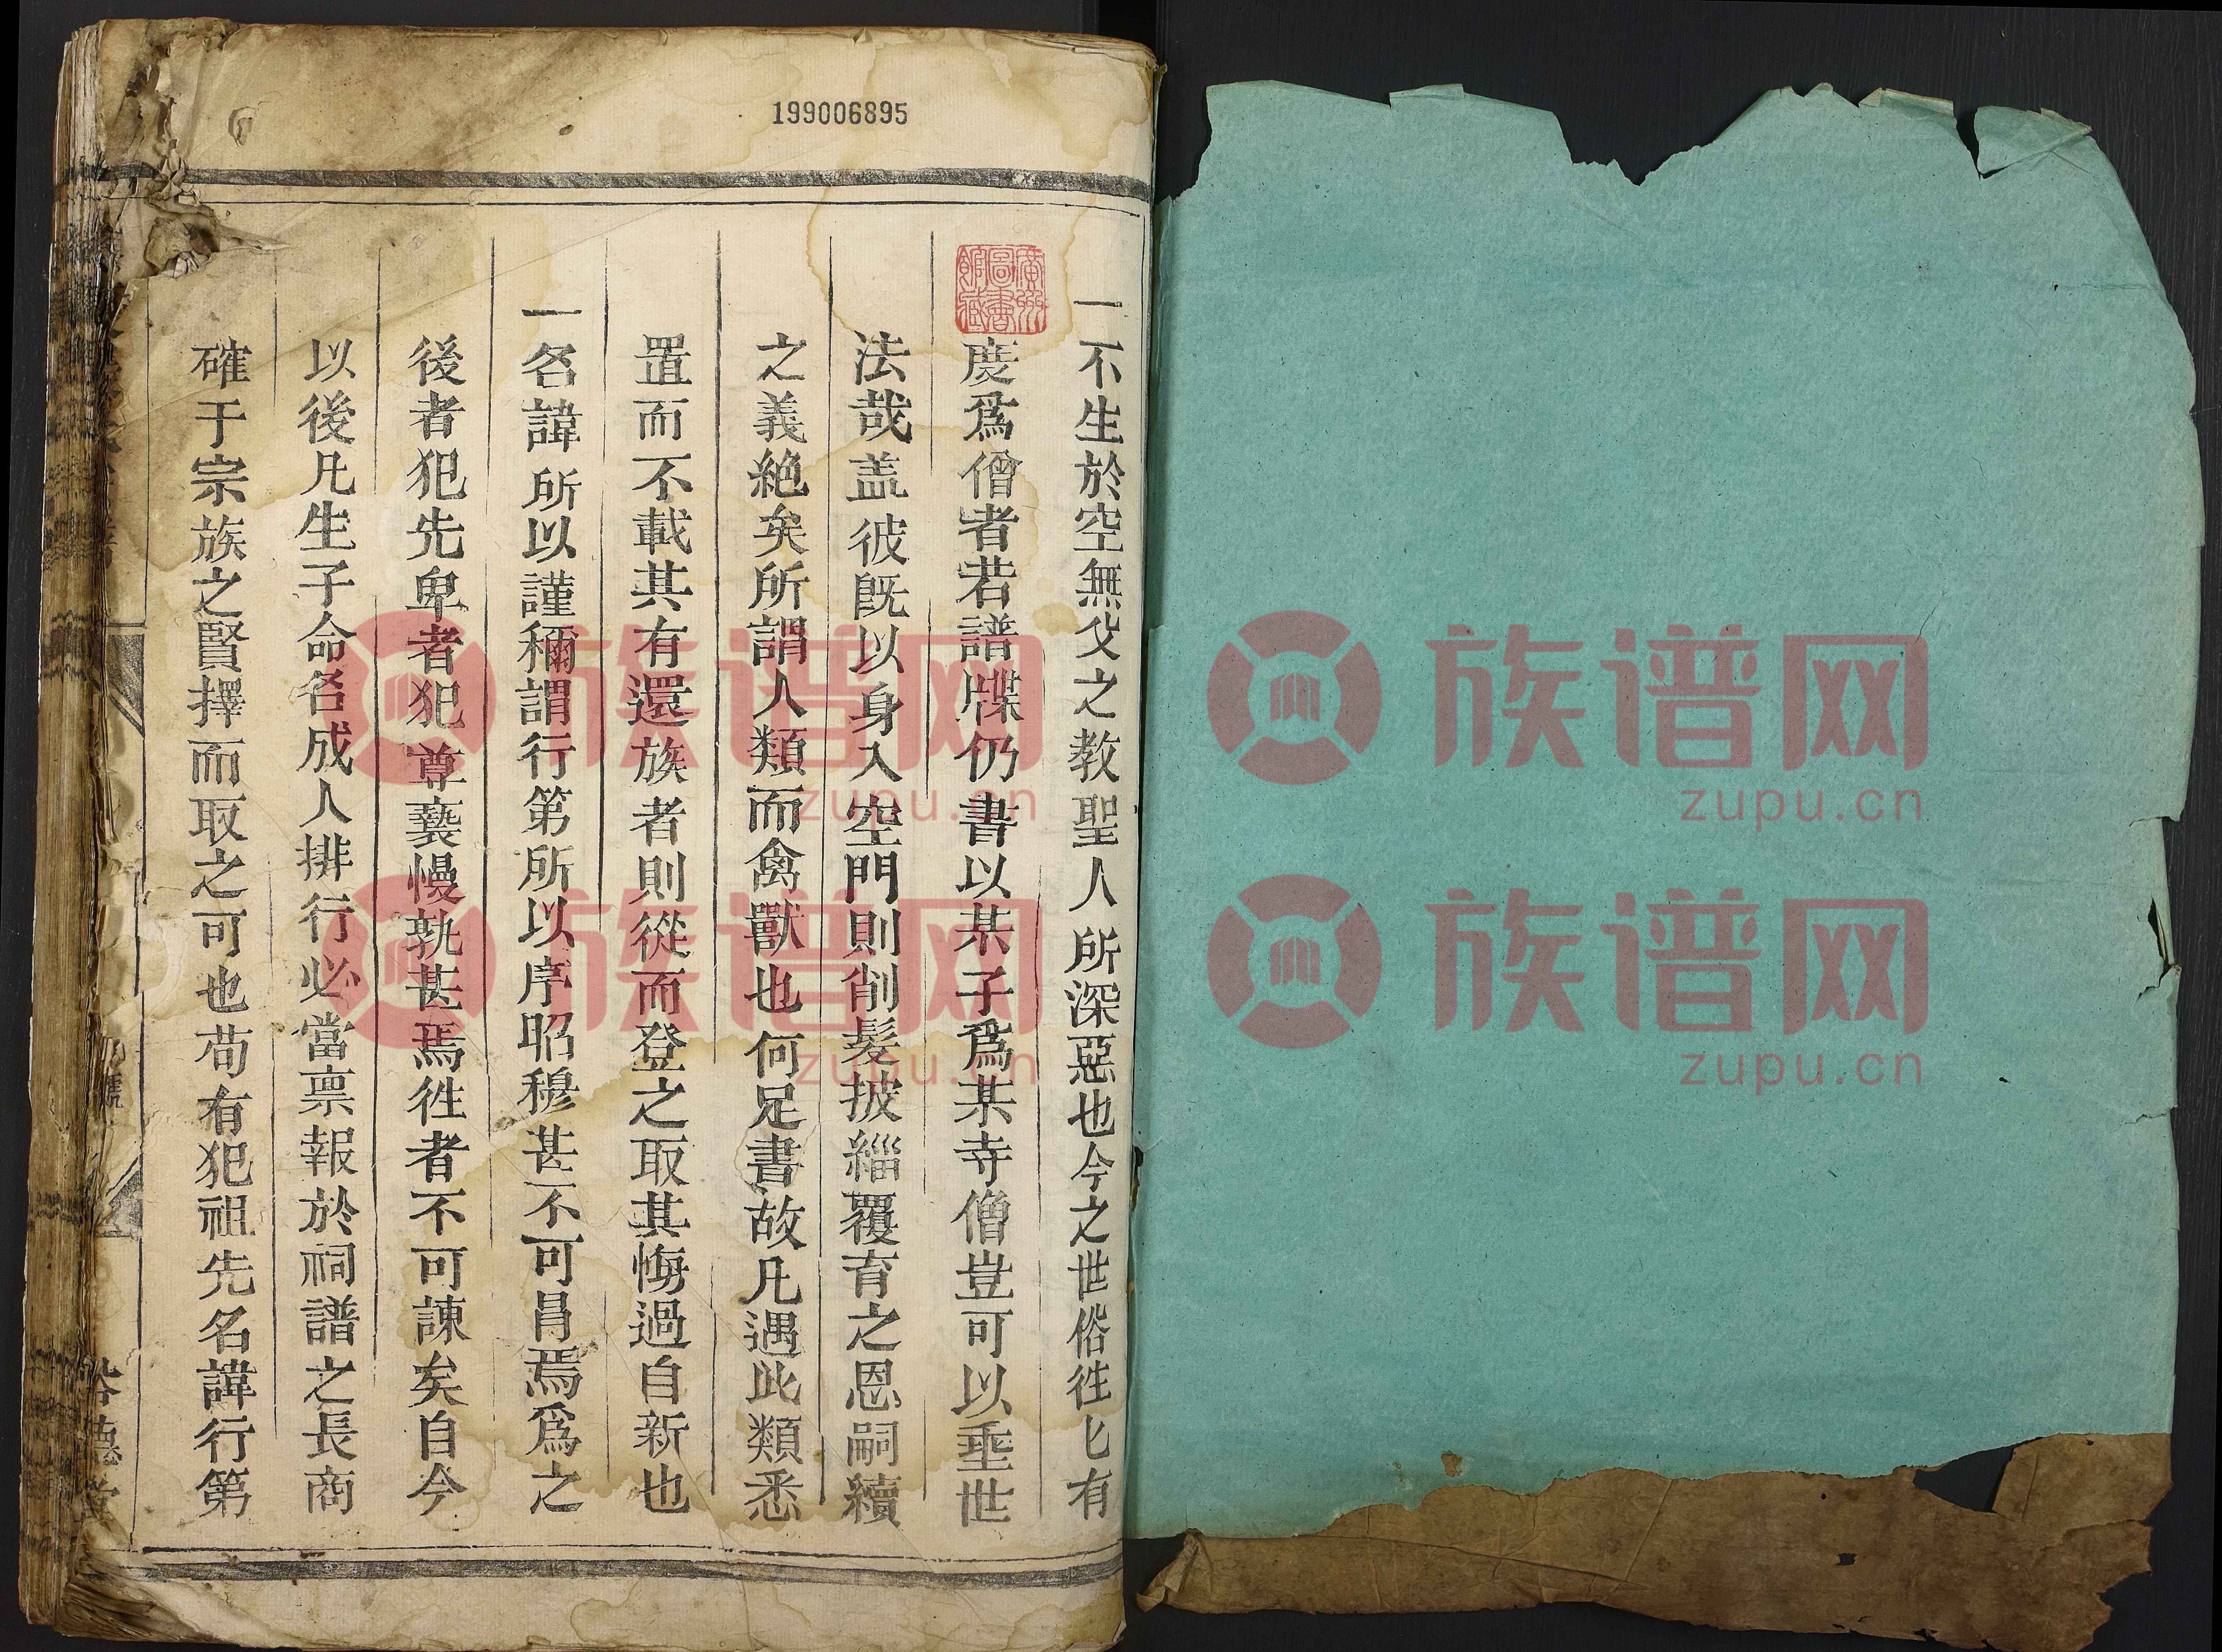 199006895
廣州圖書館藏
一不生於空無父之教聖人所深惡也今之世俗徃匕有
度爲僧者若譜牒仍書以某子爲某寺僧豈可以垂世
法哉盖彼既以身入空門則削髮披緇覆育之恩嗣續
之義絶矣所謂人類而禽獸也何足書故凡遇此類悉
置而不載其有還族者則從而登之取其悔過自新也
一名諱所以謹稱謂行第所以序昭穆甚不可昌焉爲之
後者犯先卑者犯尊䙝慢孰甚焉徃者不可諌矣自今
以後凡生子命名成人排行必當禀報於祠譜之長商
確于宗族之賢擇而取之可也苟有犯祖先名諱行第
族谱网
zupu.cn
族谱网
zupu.cn
族谱网
zupu.cn
族谱网
zupu.cn